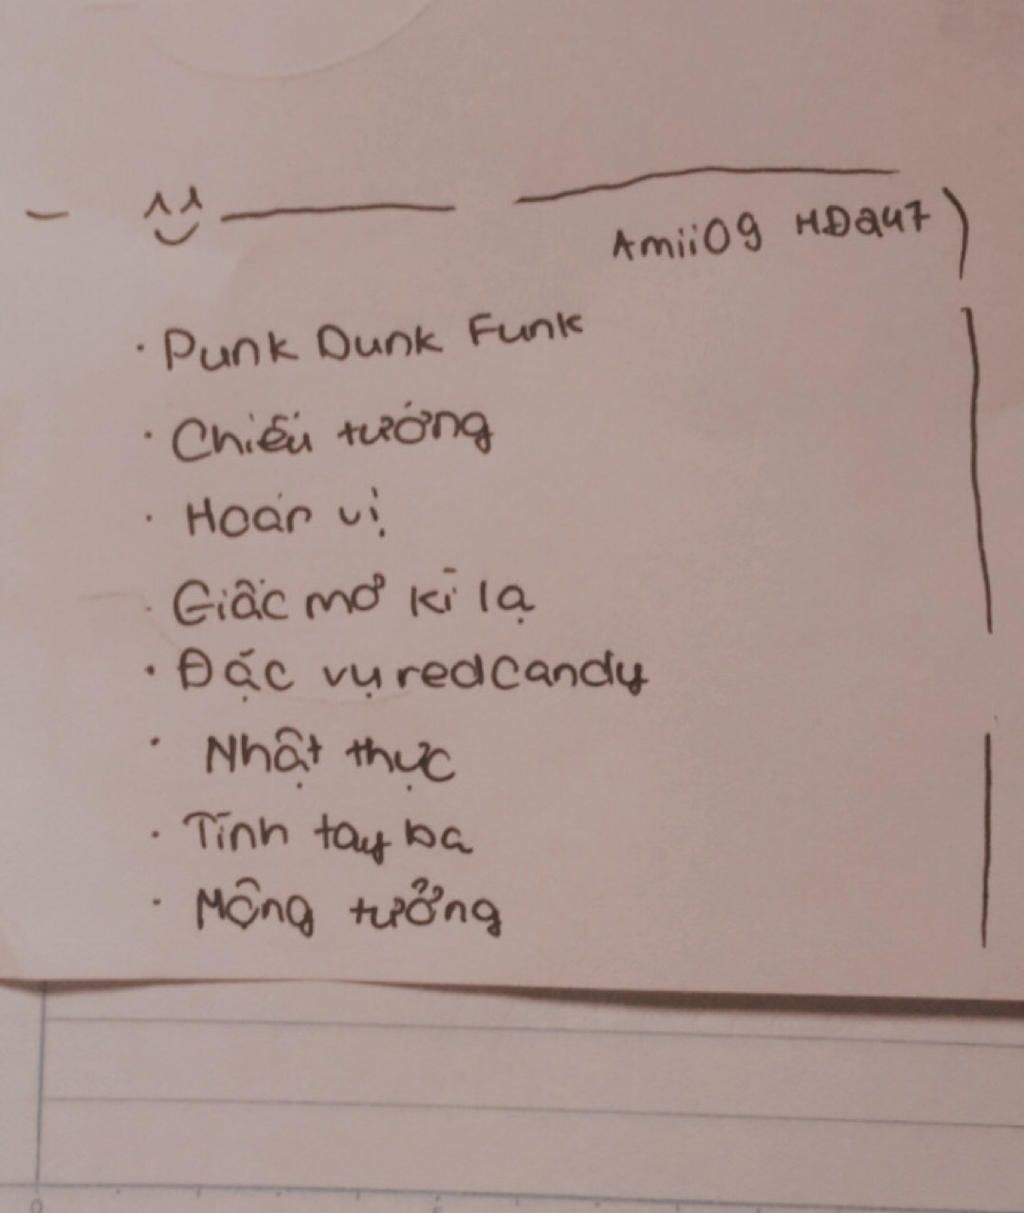 Amii09 HĐ247
· Punk Dunk Funk
· Chiếu tướng
· Hoán vị
· Giấc mơ kì lạ
· Đặc vụ redcandy
· Nhật thực
· Tình tay ba
· Mộng tưởng
0